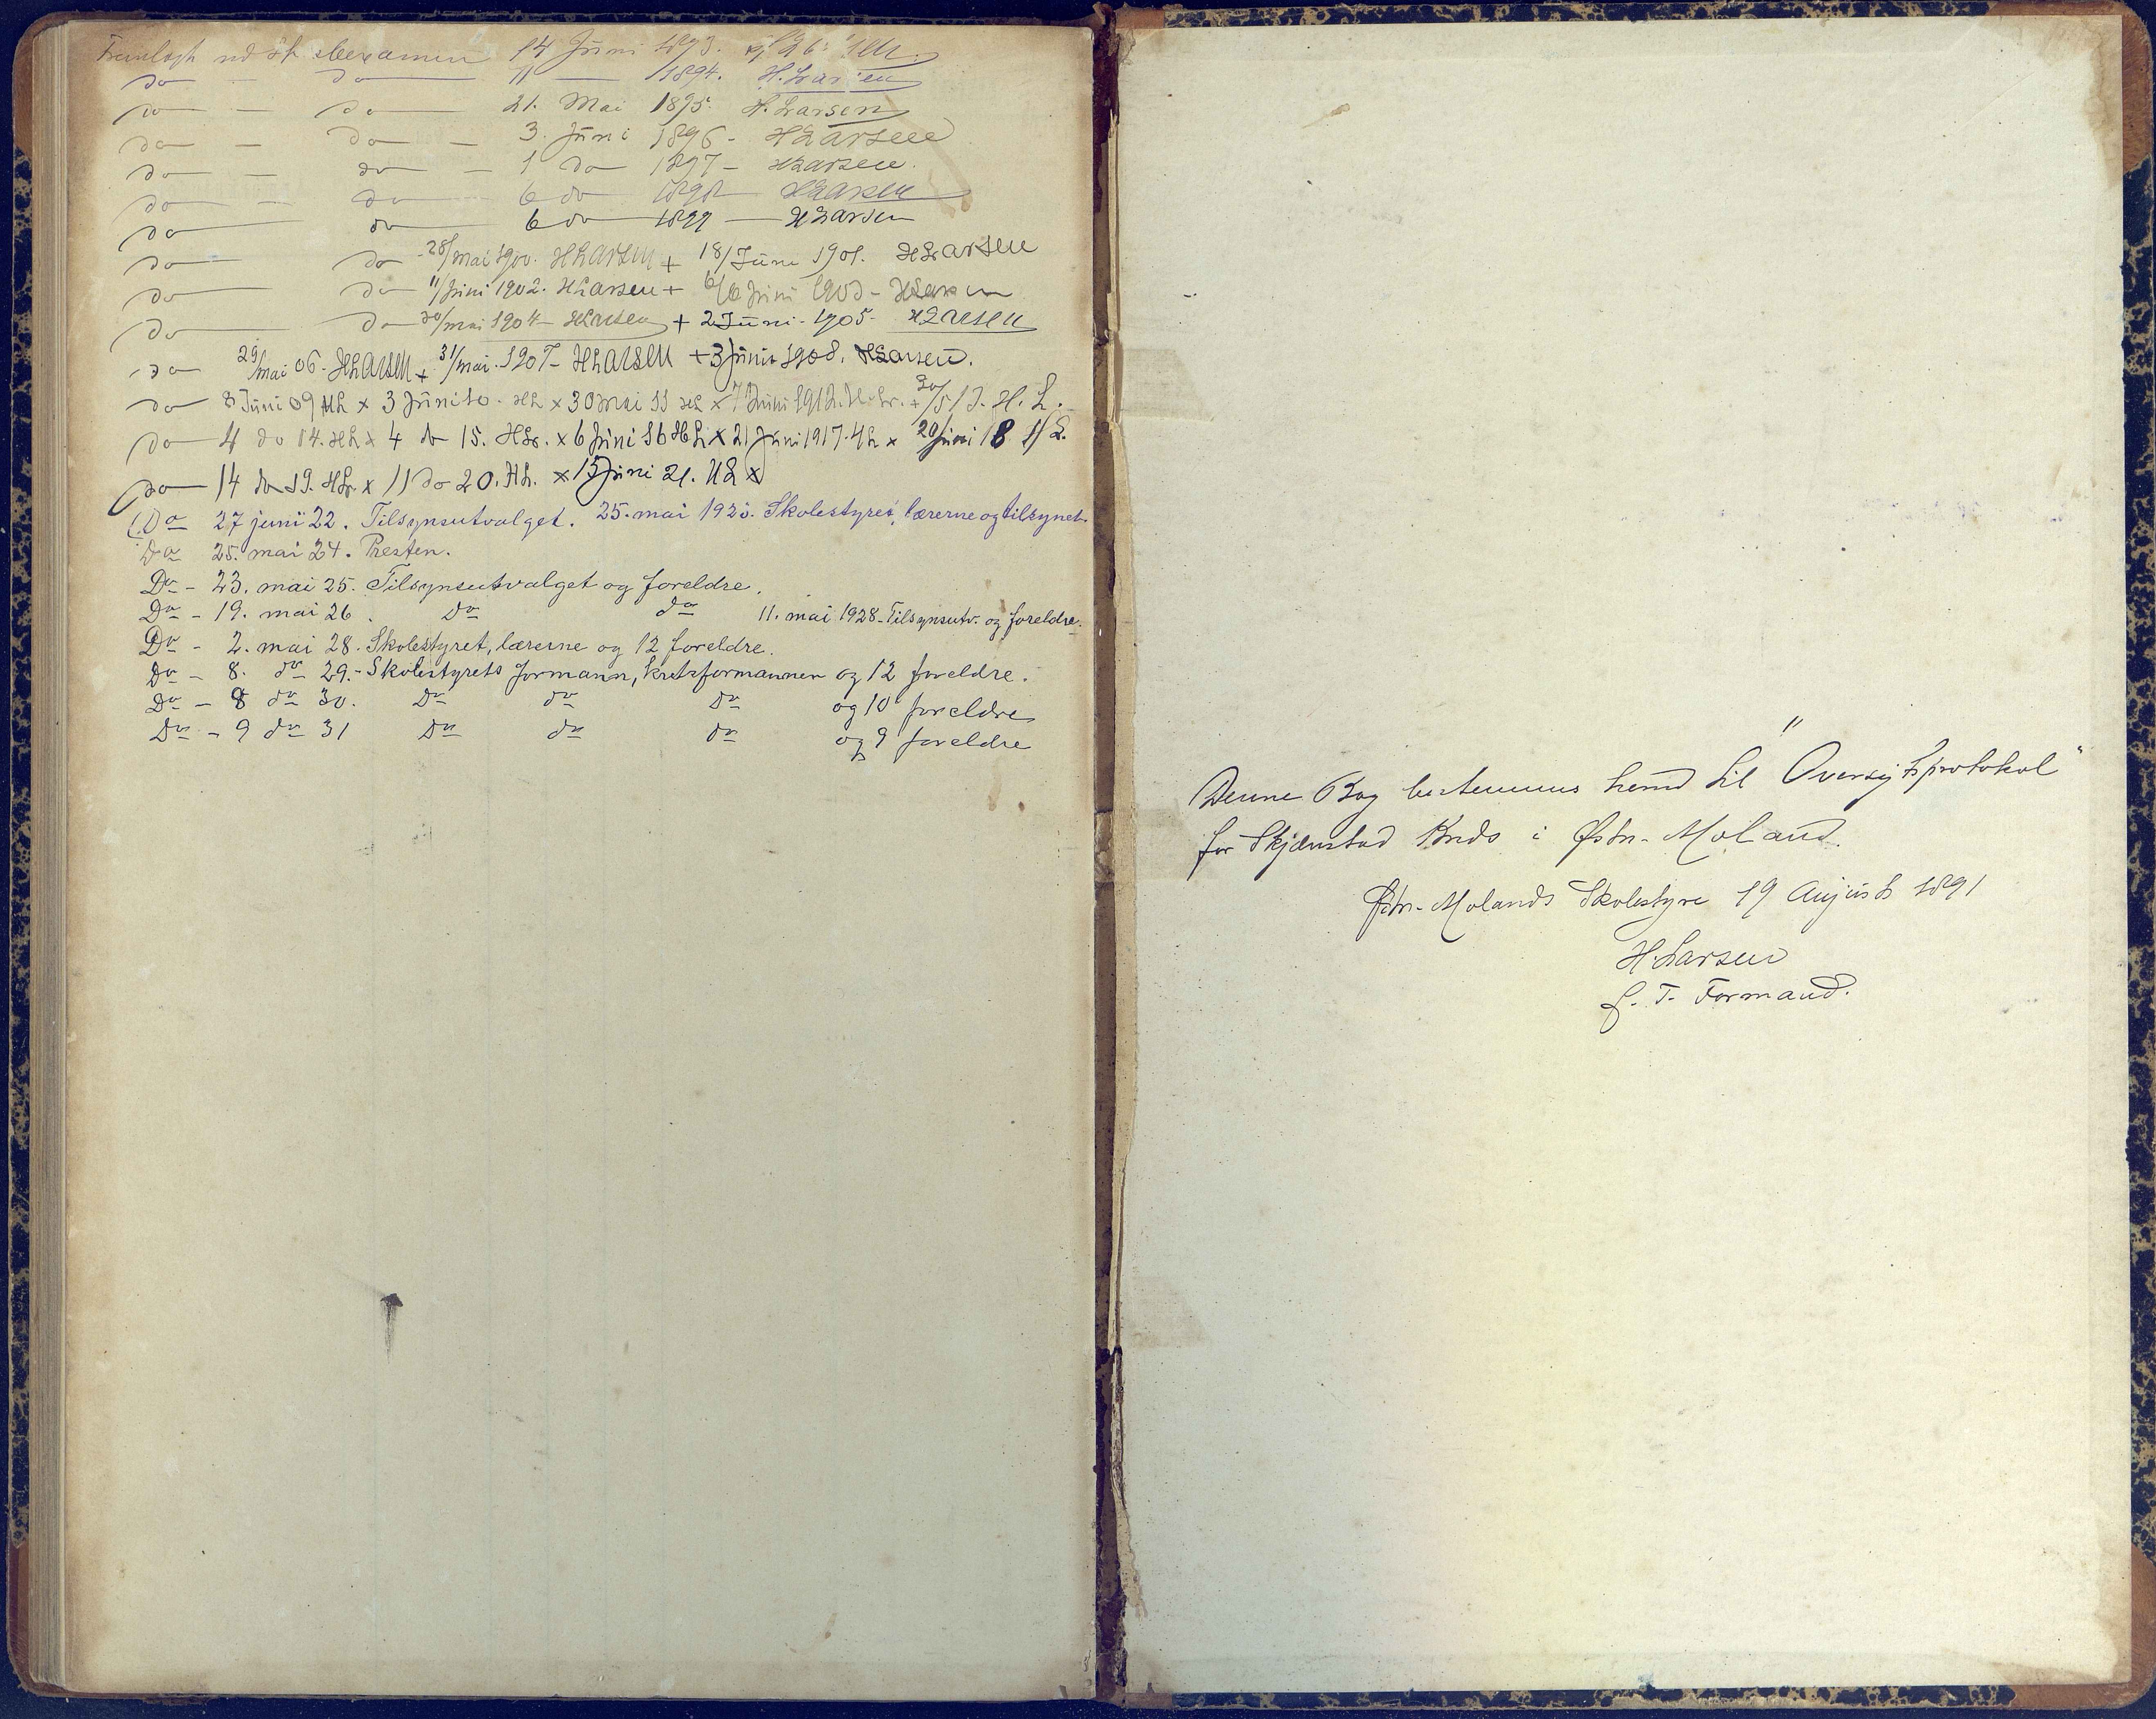 14 Juni 1893.
do — do — 11 — 1894. H. Larsen
do — do — 21. Mai 1895. H. Larsen
do — do — 3. Juni 1896 - HLarsen
do — do — 1 do 1897 - HLarsen.
do — do — 6 do 1898 HLarsen
do — do — 6 do 1899 — HLarsen
do — do - 28/mai 1900. HLarsen + 18/Juni 1901. HLarsen
do — do - 11/Juni 1902. HLarsen + Juni 1903 - HLarsen
do — do - 30/mai 1904 - HLarsen + 2 Juni - 1905 - HLarsen
do 29/mai 06 - HLarsen + 31/mai. 1907 - HLarsen + 3 Juni 1908. HLarsen.
do 8 Juni 09 HL x 3 Juni 10. HL x 30 mai 11 HL x 7 Juni 1912. H. Lr. + 30/5 13. H. L.
do 4 do 14. HL x 4 do 15. HLr. x 6 Juni 16 HL x 21 Juni 1917. HL x 20/juni 18 HL.
do 14 do 19. HLr x 11 do 20. HL. x 15 Juni 21. HL x
Do 27 juni 22. Tilsynsutvalget. 25. mai 1923. Skolestyret, lærerne og tilsynet.
Do 25. mai 24. Presten.
Do - 23. mai 25. Tilsynsutvalget og foreldre.
Do - 19. mai 26. do do 11. mai 1928 - Tilsynsutv. og foreldre.
Do - 2. mai 28. Skolestyret, lærerne og 12 foreldre.
Do - 8. do 29. - Skolestyrets formann, kretsformannen og 12 foreldre.
Do - 8 do 30. Do do Do og 10 foreldre
Do - 9 do 31 Do do Do og 9 foreldre
Denne Bog bestemmes herved til "Oversigtsprotokol"
for Skjænstad Kreds i Østre-Moland.
Østre-Molands Skolestyre 19 August 1891
H. Larsen
f. T. Formand.